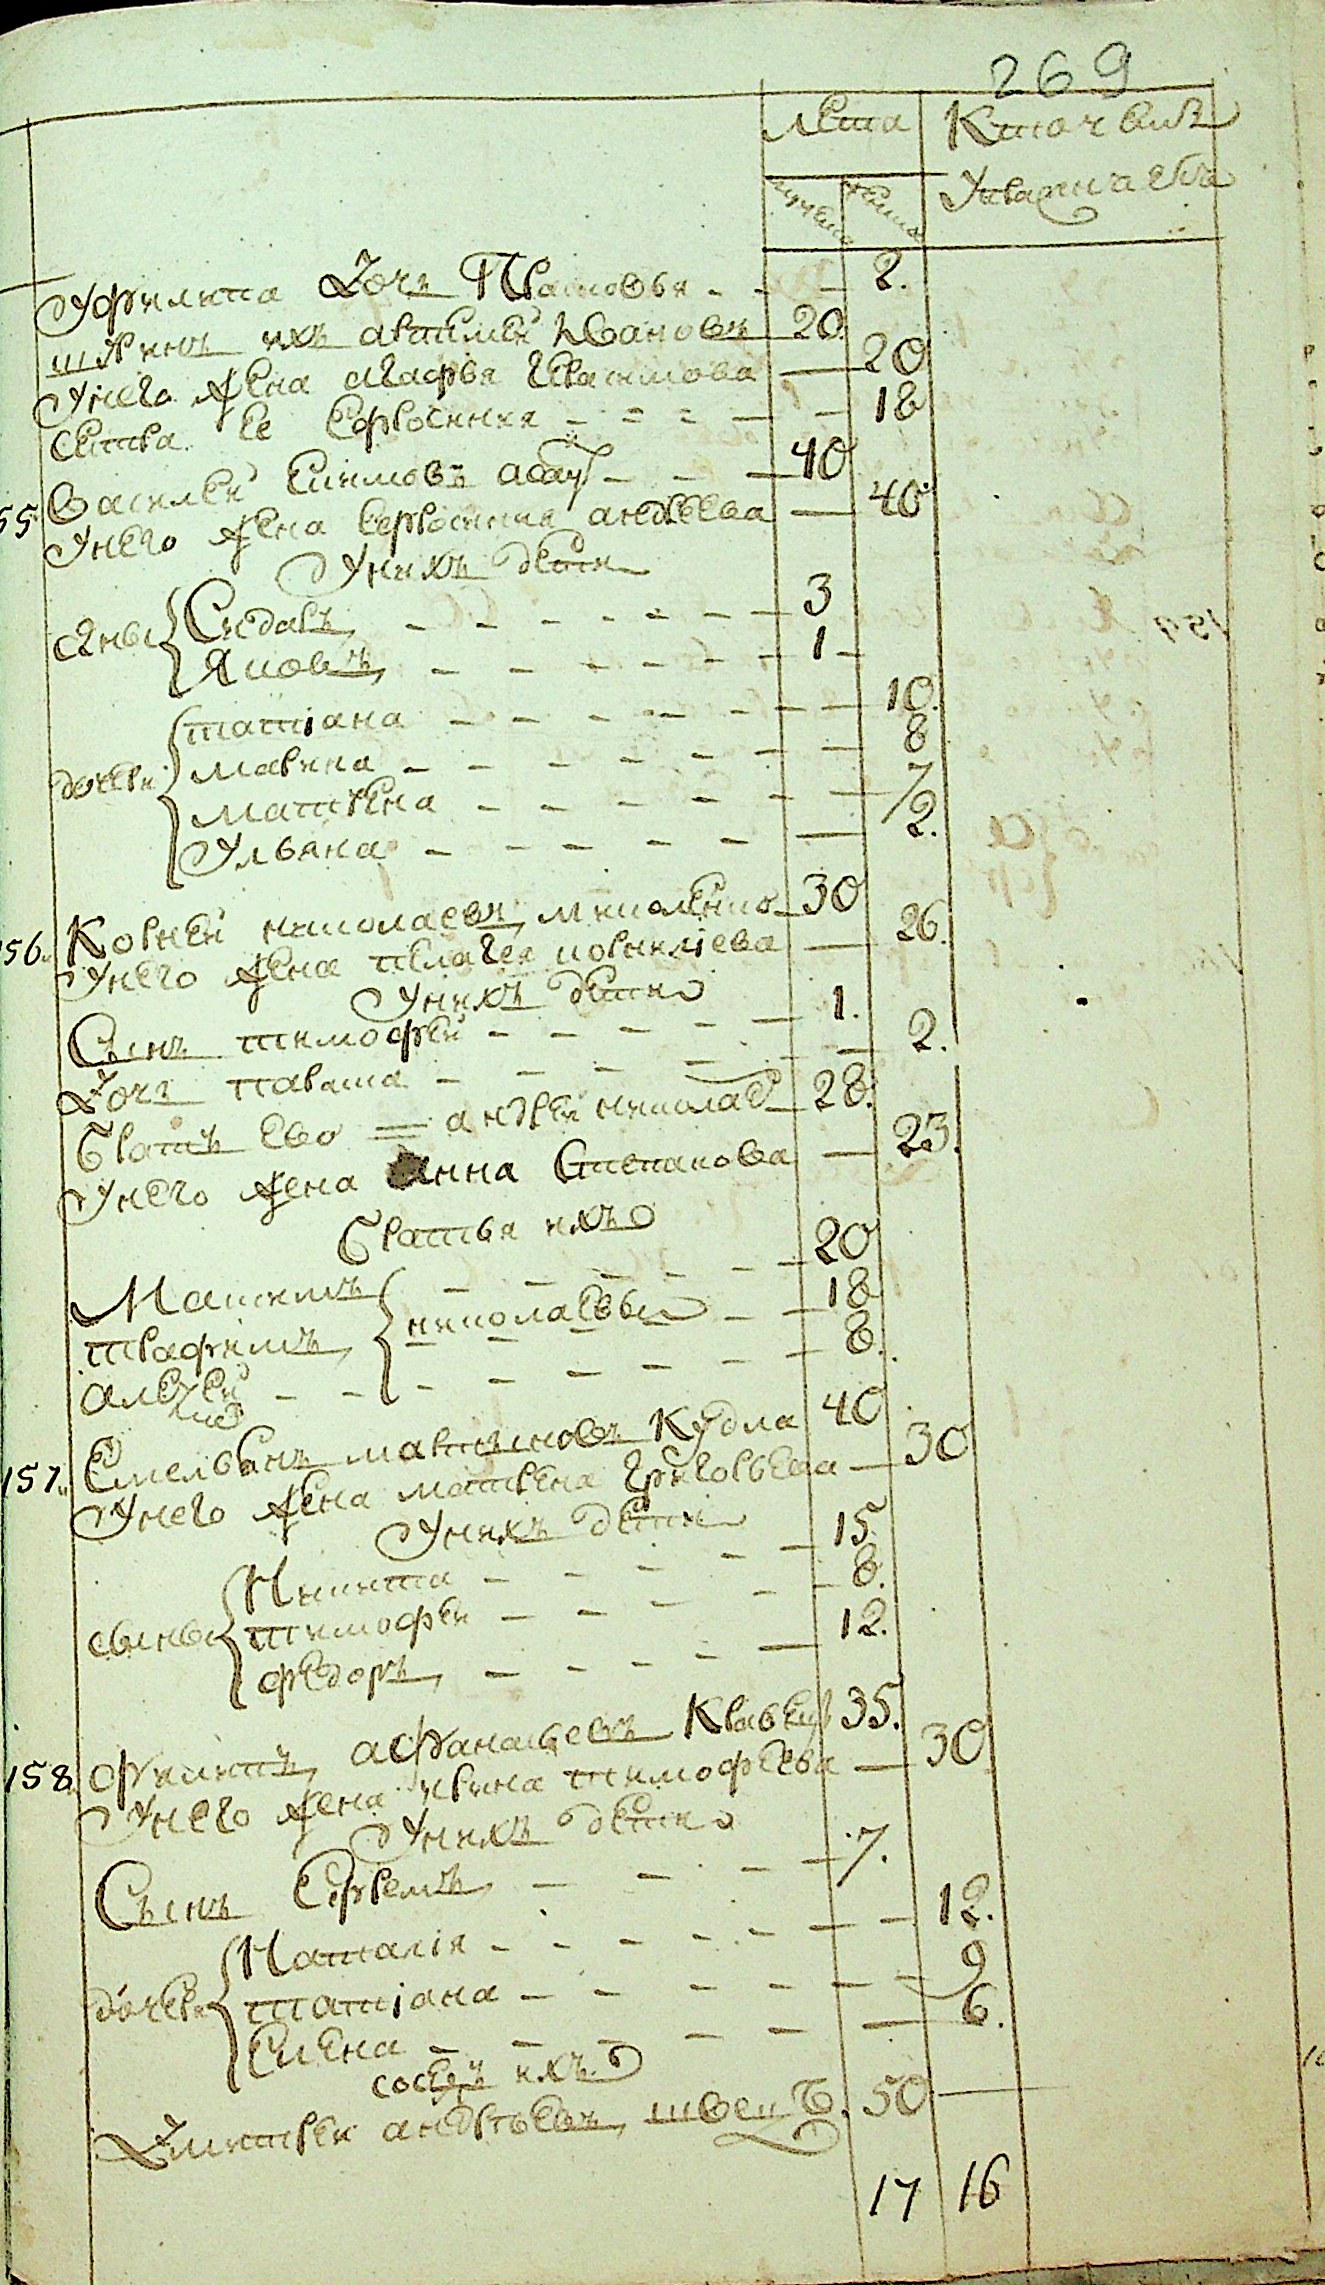 269
лета
Кто чемъ
мужеска женска
У Филипа дочь Прасковья 2.
шуринъ ихъ артимей Ивановъ 20
У него жена агафья Герасимова 20
сестра ее Ефросиния 18
55. Василей Климовъ 40
У него жена Ефросиния андреева 40
У нихъ дети
сыны Сидаръ 3
Яковъ 1
дочери татiана 10.
марина 8
матрена 7
Ульяна 2.
156. Корней николаевъ 30
У него жена пелагея корнилiева 26.
У нихъ дети
Сынъ тимофей 1.
Дочь параска 2.
Братъ ево андрей никола 28.
У него жена Анна Степанова 23.
Братья ихъ
Максимъ 20
трафимъ николаевы 18
алексей 8.
157. Емельянъ мартыновъ Кудла 40
У него жена матрена григорьева 30
У нихъ дети
сыны Никита 15
тимофей 8.
федоръ 12.
158 филипъ афанасьевъ Кравец 35.
У него жена ирина тимофеева 30
У нихъ дети
Сынъ Ефремъ 7.
дочери Наталiя 12.
татiана 9
Елена 6.
соседъ ихъ
Дмитрей андреевъ швецъ. 50
17 16